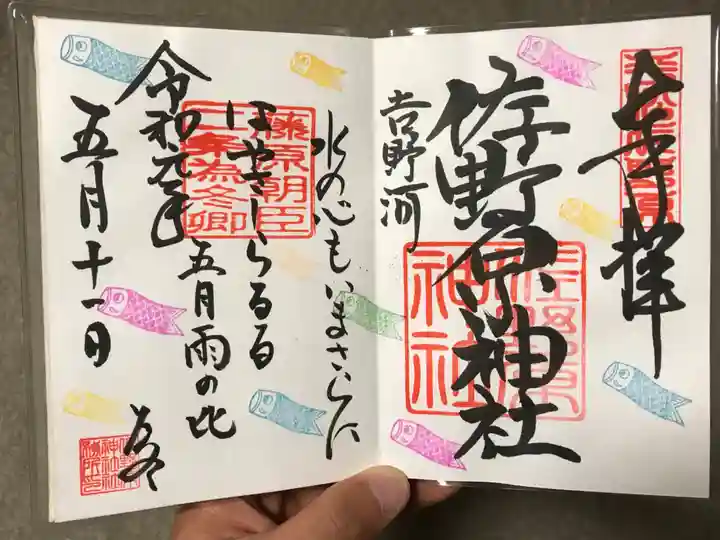 奉拝
佐野原神社
佐野原
神社
吉野河
水の心もいまさらに
はやさしらるる
五月雨の比
為冬
藤原朝臣
二条為冬卿
令和元年
五月十一日